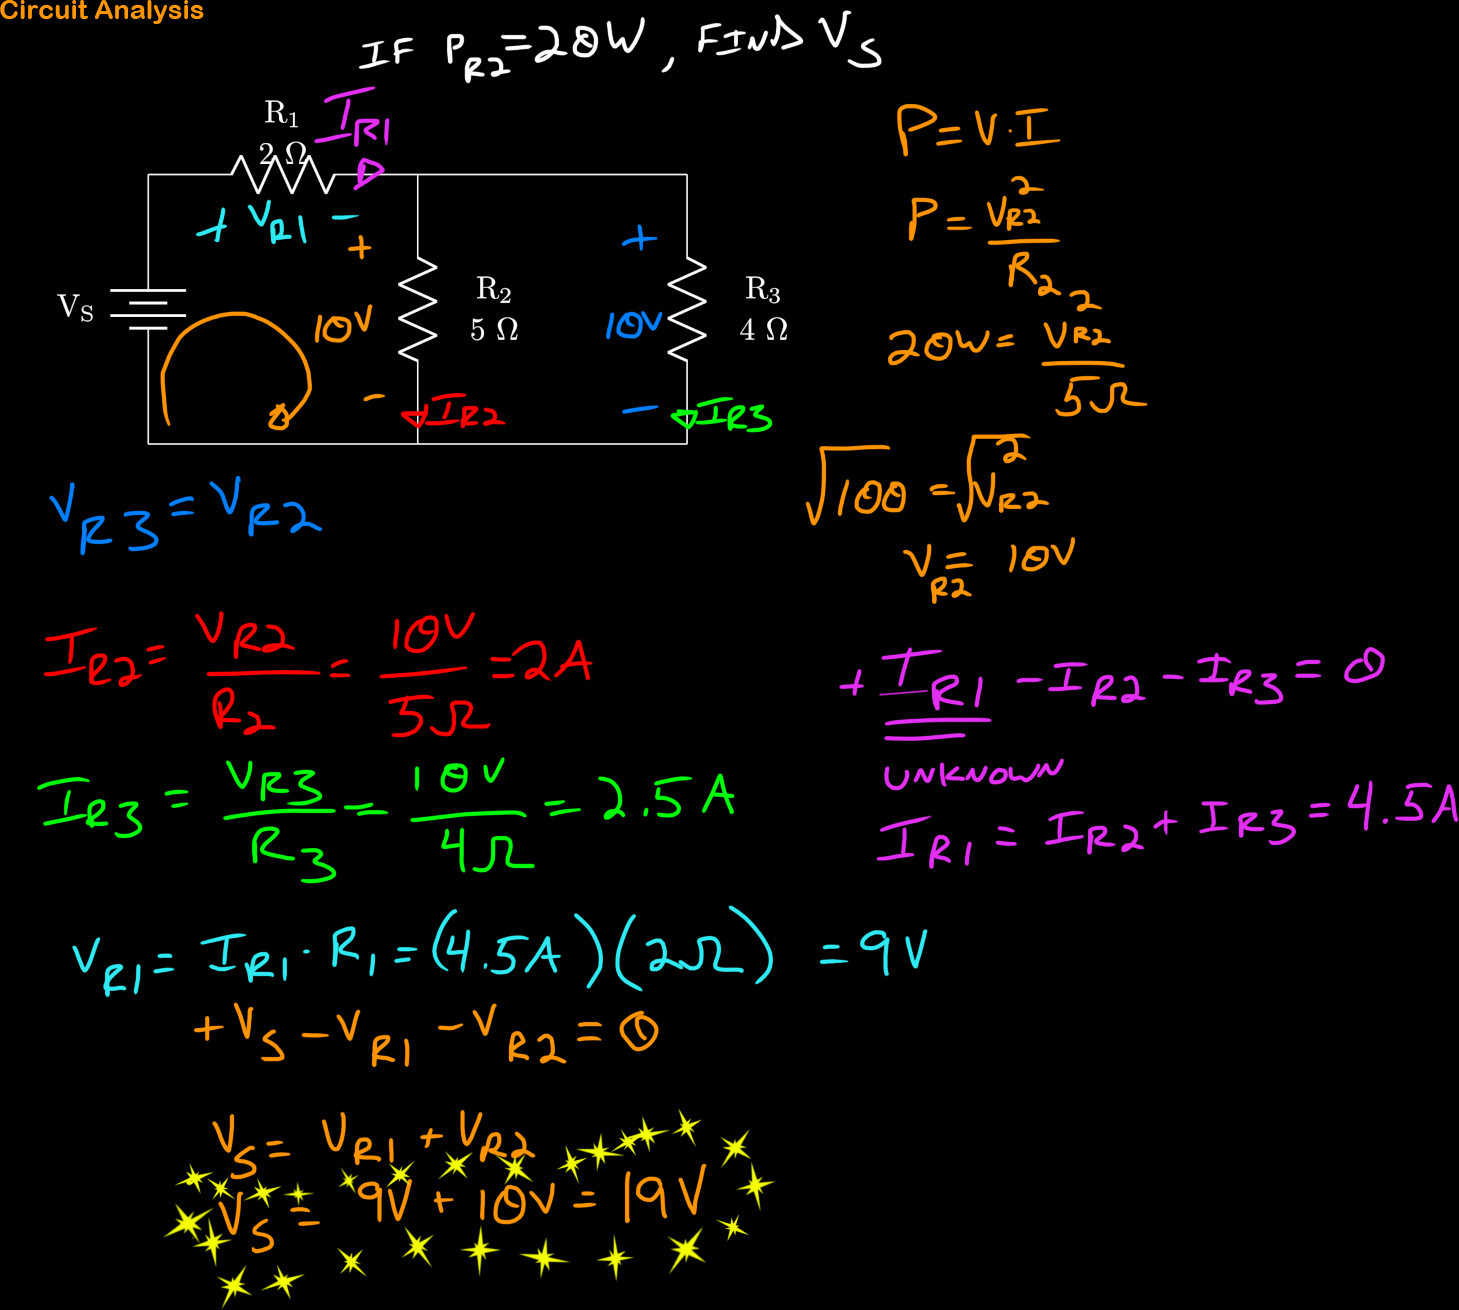 Circuit Analysis
IF P_R2 = 20W, FIND V_S
R₁
2 Ω
I_R1
+ V_R1 −
V_S
+
10V
−
R₂
5 Ω
I_R2
+
10V
−
R₃
4 Ω
I_R3
P = V·I
P = V_R2² / R₂
20W = V_R2² / 5Ω
√100 = √V_R2²
V_R2 = 10V
V_R3 = V_R2
I_R2 = V_R2 / R₂ = 10V / 5Ω = 2A
I_R3 = V_R3 / R₃ = 10V / 4Ω = 2.5A
+ I_R1 − I_R2 − I_R3 = 0
UNKNOWN
I_R1 = I_R2 + I_R3 = 4.5A
V_R1 = I_R1 · R₁ = (4.5A)(2Ω) = 9V
+V_S − V_R1 − V_R2 = 0
V_S = V_R1 + V_R2
V_S = 9V + 10V = 19V